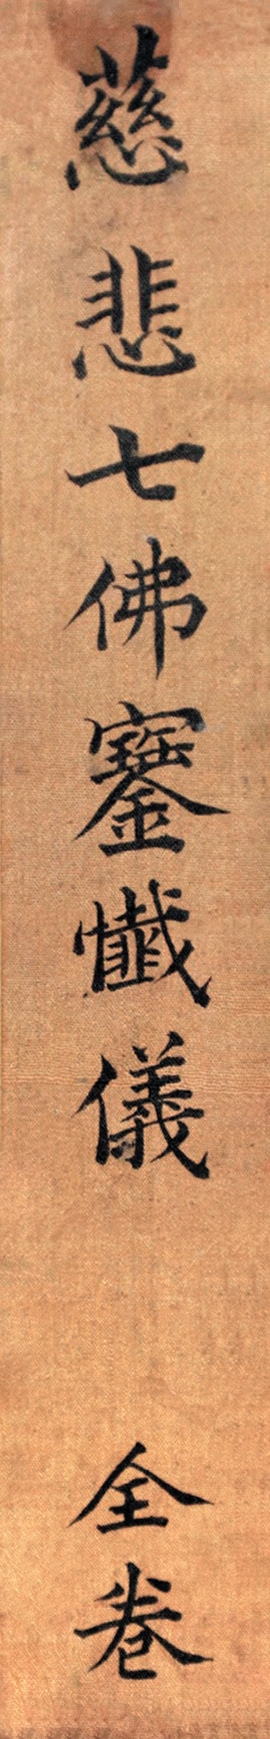 慈悲七佛寳懺儀　全卷